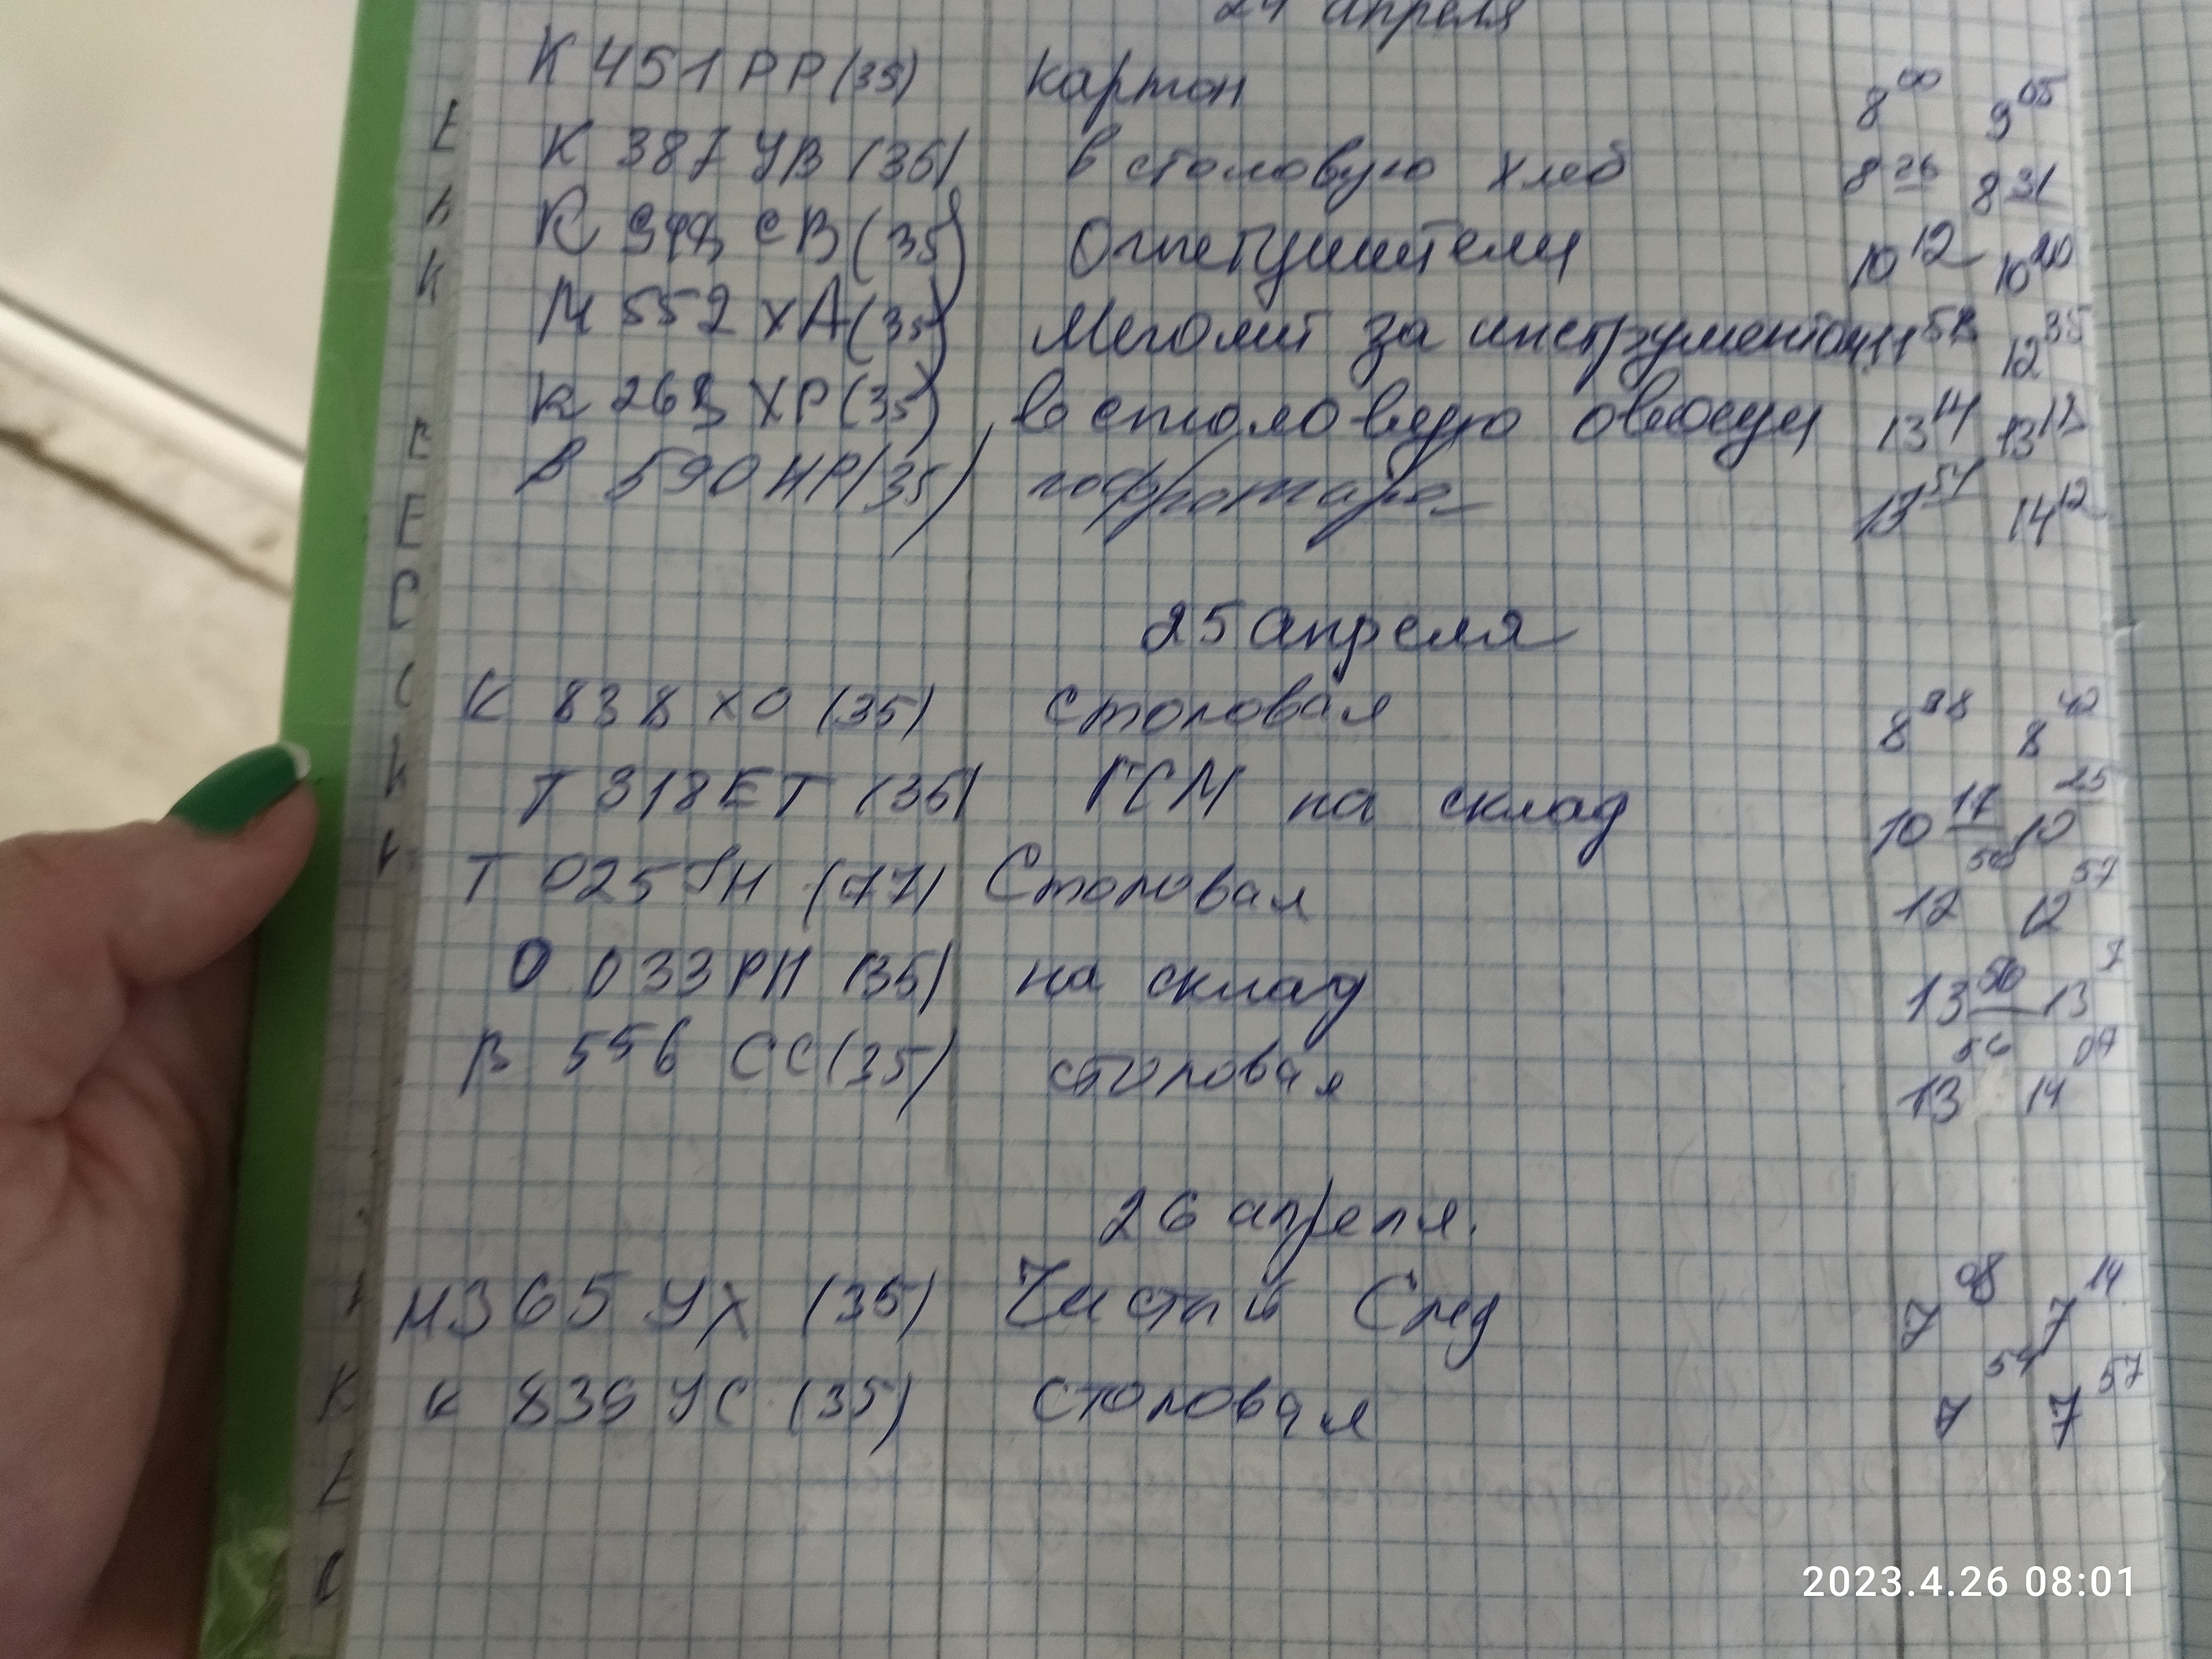 24 апреля
К 451 РР (35) картон 8 00 9 05
К 387 УВ (35) в столовую хлеб 8 26 8 31
К СВ (35) Огнетушители 10 12 10 20
М 552 ХА (35) Меголит за инструментом 11 58 12 35
К 263 ХР (35) в столовую овощи 13 14 13
В 590 НР (35) гофротара 13 51 14 12
25 апреля
К 838 ХО (35) столовая 8 38 8 42
Т 318 ЕТ (35) ГСМ на склад 10 17 10 25
Т 025 (77) Столовая 12 50 12 57
О 033 РН (35) на склад 13 50 13
В 556 СС (35) столовая 13 56 14 07
26 апреля.
М 365 УХ (35) Чистый След 7 08 7 14
К 839 УС (35) столовая 7 54 7 57
2023.4.26 08:01